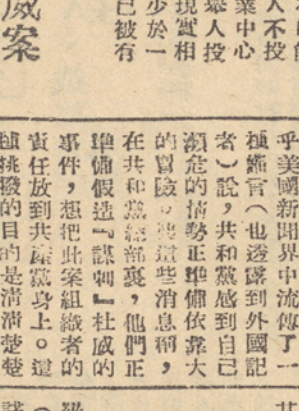 人不投
業中心
舉人投
現實相
少於一
已被有
威案
乎美國新聞界中流傳了一
種謠言（也透露到外國記
者）說，共和黨感到自己
瀕危的情勢正準備依靠大
的冒險。據這些消息稱，
在共和黨總部裏，他們正
準備假造『謀刺』杜威的
事件，想把此案組織者的
責任放到共產黨身上。這
種挑撥的目的是清清楚楚